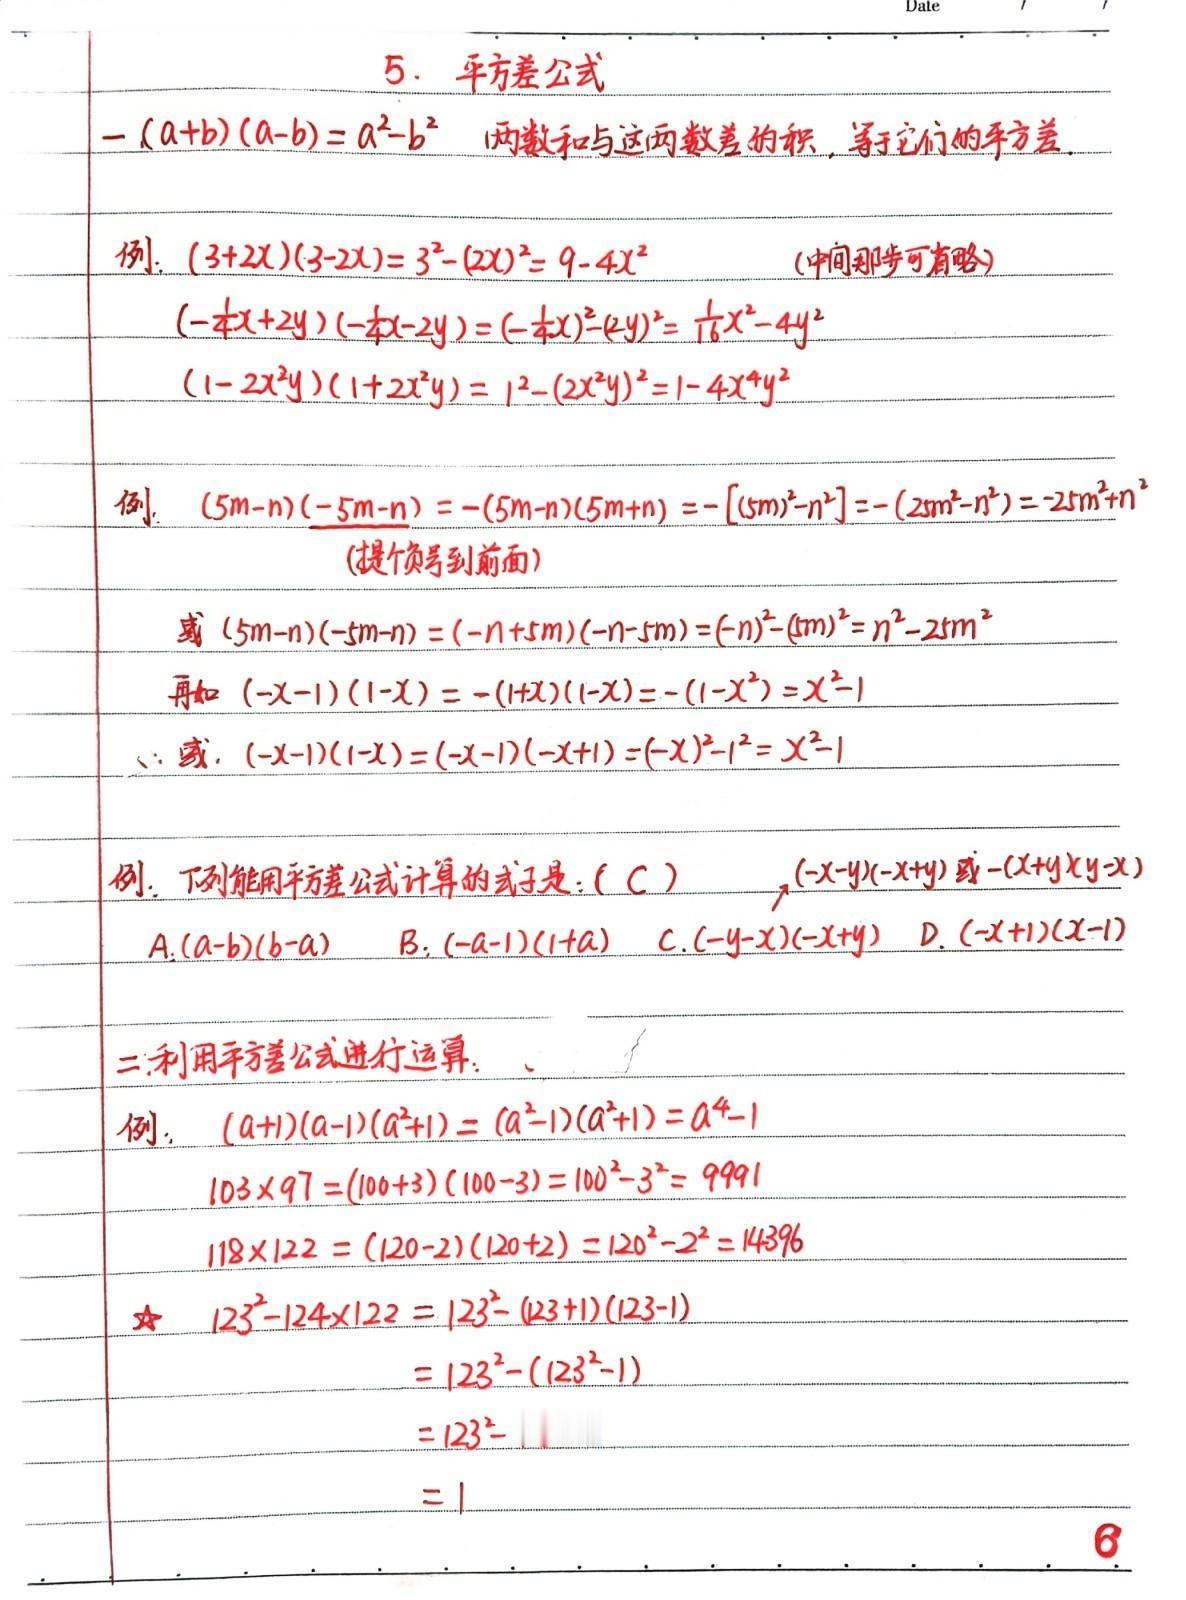 Date / /
5. 平方差公式
一 (a+b)(a-b)=a²-b² 两数和与这两数差的积,等于它们的平方差.
例: (3+2x)(3-2x)=3²-(2x)²=9-4x² (中间那步可省略)
(-1/4x+2y)(-1/4x-2y)=(-1/4x)²-(2y)²=1/16x²-4y²
(1-2x²y)(1+2x²y)=1²-(2x²y)²=1-4x⁴y²
例: (5m-n)(-5m-n)=-(5m-n)(5m+n)=-[(5m)²-n²]=-(25m²-n²)=-25m²+n²
(提个负号到前面)
或 (5m-n)(-5m-n)=(-n+5m)(-n-5m)=(-n)²-(5m)²=n²-25m²
再如 (-x-1)(1-x)=-(1+x)(1-x)=-(1-x²)=x²-1
∴ 或. (-x-1)(1-x)=(-x-1)(-x+1)=(-x)²-1²=x²-1
例: 下列能用平方差公式计算的式子是:( C ) (-x-y)(-x+y) 或 -(x+y)(y-x)
A.(a-b)(b-a) B.(-a-1)(1+a) C.(-y-x)(-x+y) D.(-x+1)(x-1)
二.利用平方差公式进行运算.
例: (a+1)(a-1)(a²+1)=(a²-1)(a²+1)=a⁴-1
103×97=(100+3)(100-3)=100²-3²=9991
118×122=(120-2)(120+2)=120²-2²=14396
☆ 123²-124×122=123²-(123+1)(123-1)
=123²-(123²-1)
=123²-
=1
6